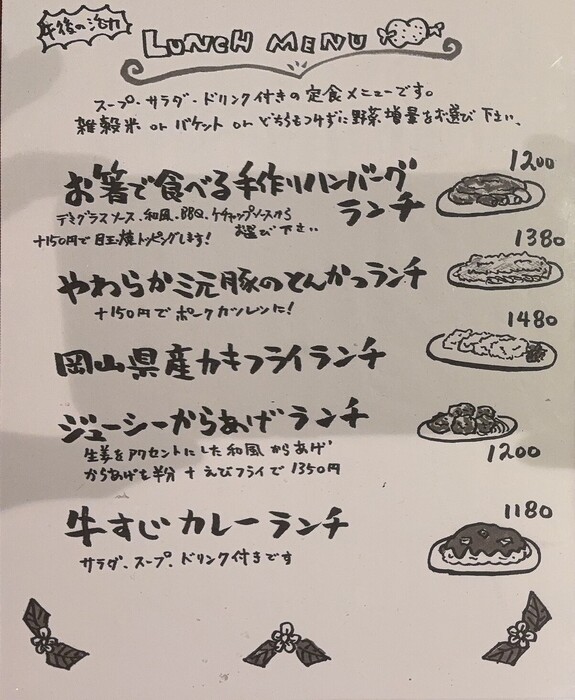 午後の活力
LUNCH MENU
スープ・サラダ・ドリンク付きの定食メニューです。
雑穀米 or バケット or どちらもつけずに野菜増量をお選び下さい。
1200
お箸で食べる手作りハンバーグ
ランチ
デミグラスソース、和風、BBQ、ケチャップソースから
お選び下さい
+150円で目玉焼トッピングします!
1380
やわらか三元豚のとんかつランチ
+150円でポークカツレツに!
1480
岡山県産カキフライランチ
ジューシーからあげランチ
生姜をアクセントにした和風からあげ
からあげを半分 + えびフライで 1350円
1200
1180
牛すじカレーランチ
サラダ、スープ、ドリンク付きです